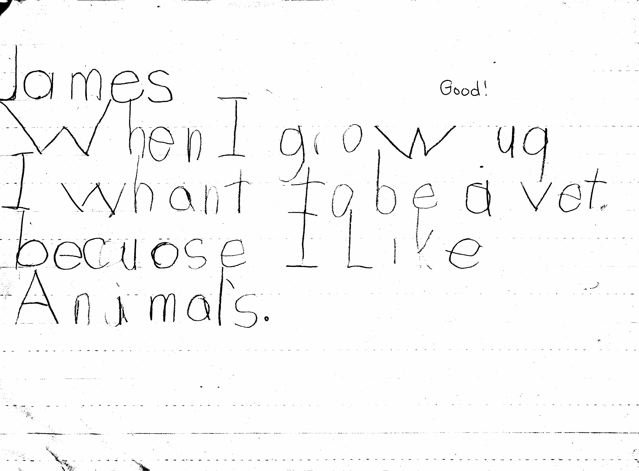 James
Good!
When I grow uq
I whant to be a vet.
becuose I Like
Animal's.